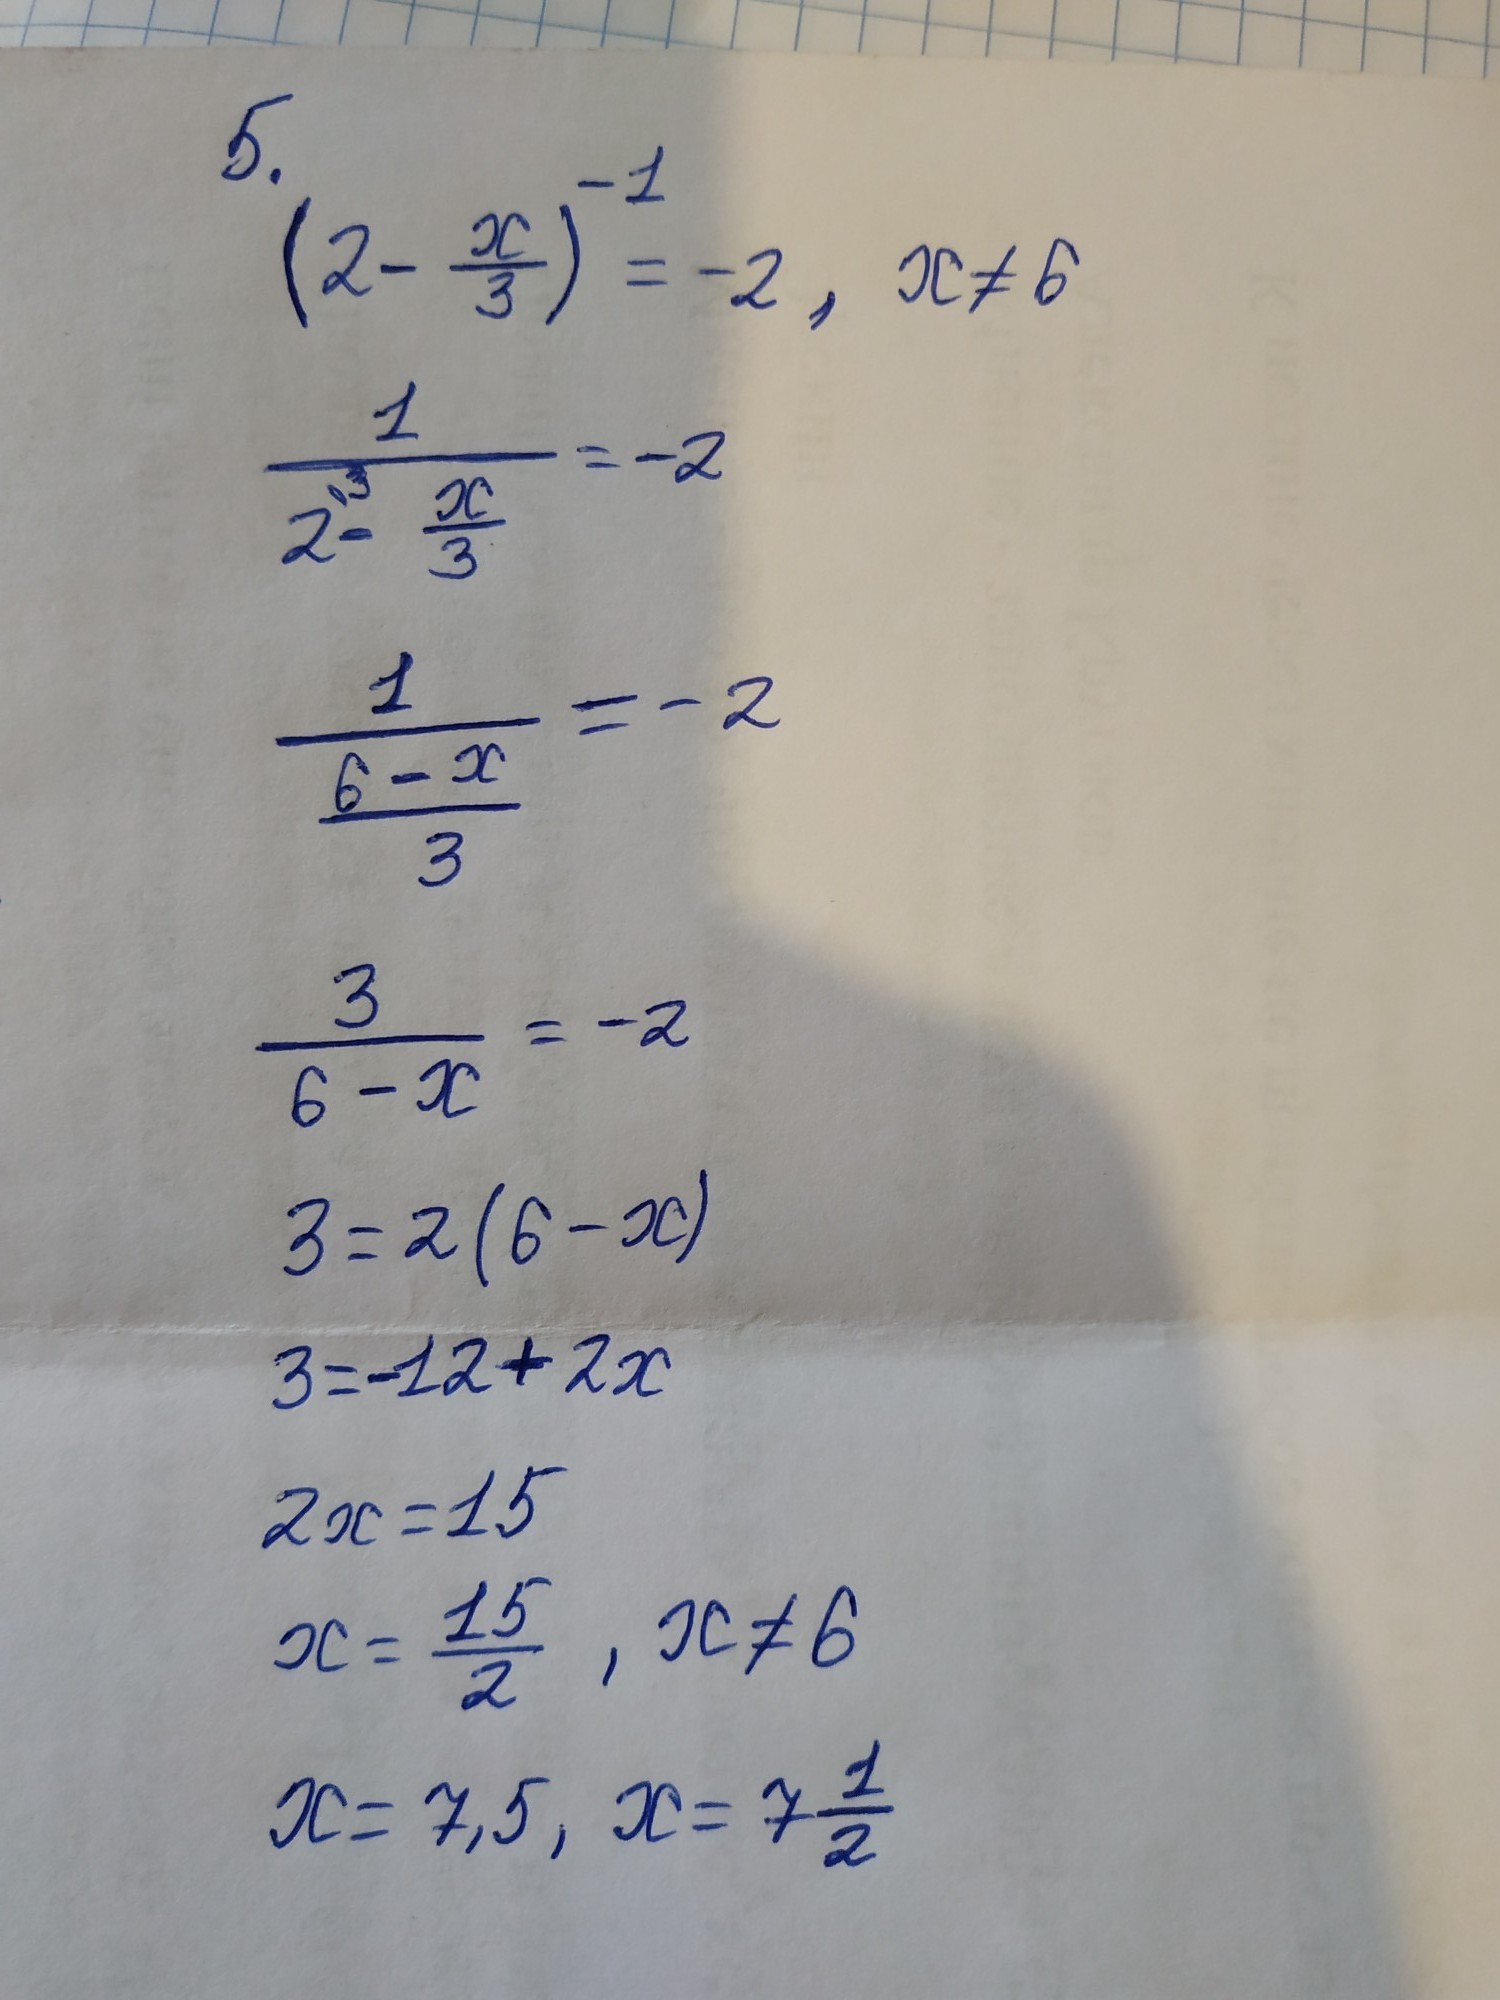 5.
(2 - x/3)^-1 = -2, x ≠ 6
1/(2^·3 - x/3) = -2
1/((6 - x)/3) = -2
3/(6 - x) = -2
3 = 2(6 - x)
3 = -12 + 2x
2x = 15
x = 15/2, x ≠ 6
x = 7,5, x = 7 1/2